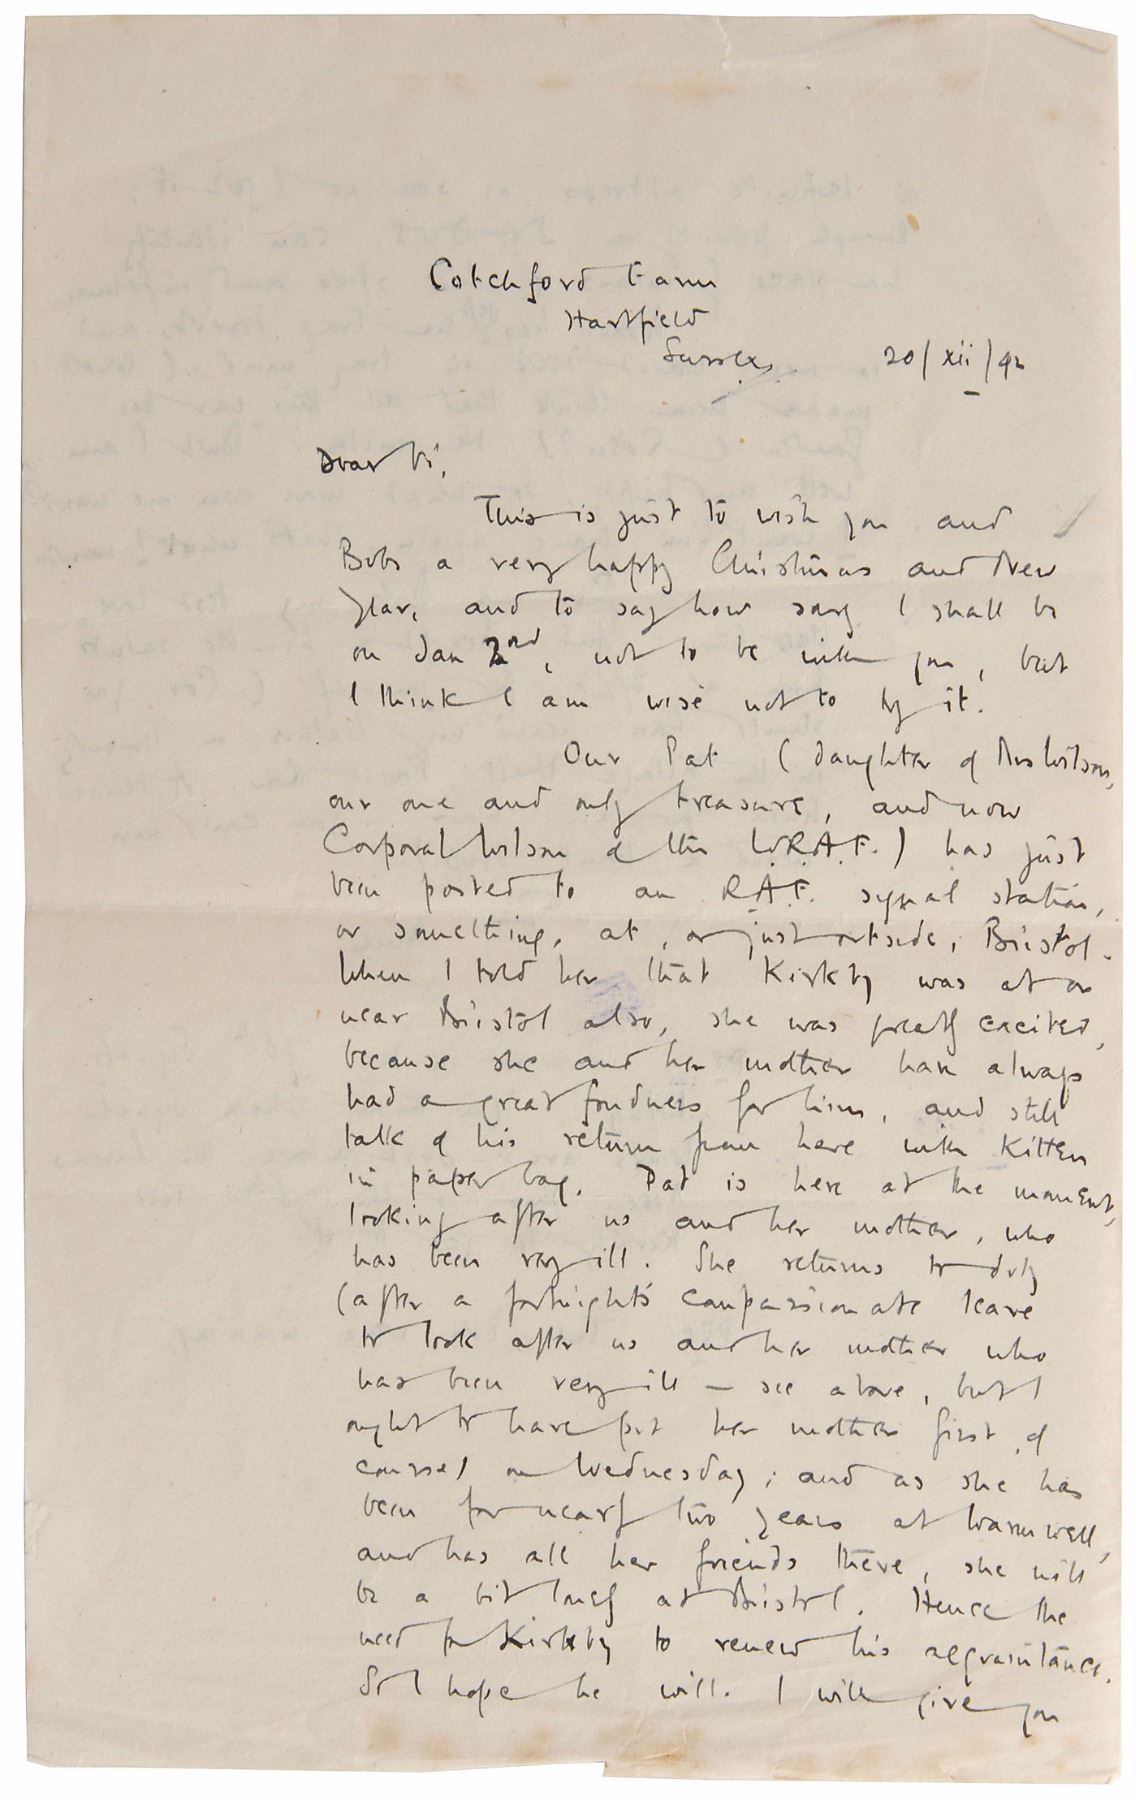 Cotchford Farm
Hartfield
Sussex.
20/xii/42
Dear Vi,
This is just to wish you and
Bobs a very happy Christmas and New
Year, and to say how sorry I shall be
on Jan 2nd, not to be with you, but
I think I am wise not to try it.
Our Pat (daughter of Mrs Wilson,
our one and only treasure, and now
Corporal Wilson of the W.R.A.F.) has just
been posted to an R.A.F. signal station,
or something, at, or just outside, Bristol.
When I told her that Kirkby was at or
near Bristol also, she was greatly excited,
because she and her mother have always
had a great fondness for him, and still
talk of his return from here with kitten
in paper bag. Pat is here at the moment,
looking after us and her mother, who
has been very ill. She returns to duty
(after a fortnight's compassionate leave
to look after us and her mother who
has been very ill — see above, but I
ought to have put her mother first, of
course) on Wednesday; and as she has
been for nearly two years at Warmwell,
and has all her friends there, she will
be a bit lonely at Bristol. Hence the
need for Kirkby to renew his acquaintance.
So I hope he will. I will give you